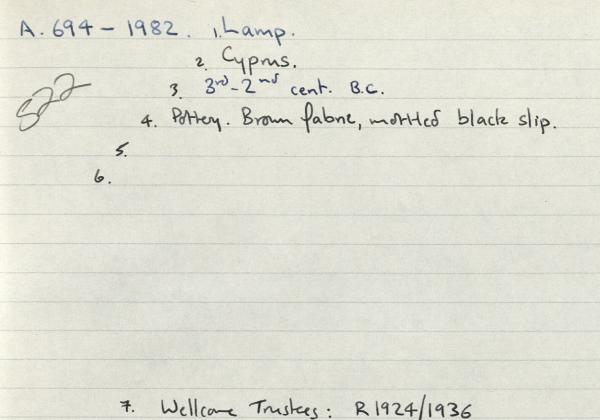 A. 694 – 1982. 1. Lamp.
2. Cyprus.
3. 3rd-2nd cent. B.C.
822
4. Pottery. Brown fabric, mottled black slip.
5.
6.
7. Wellcome Trustees: R1924/1936